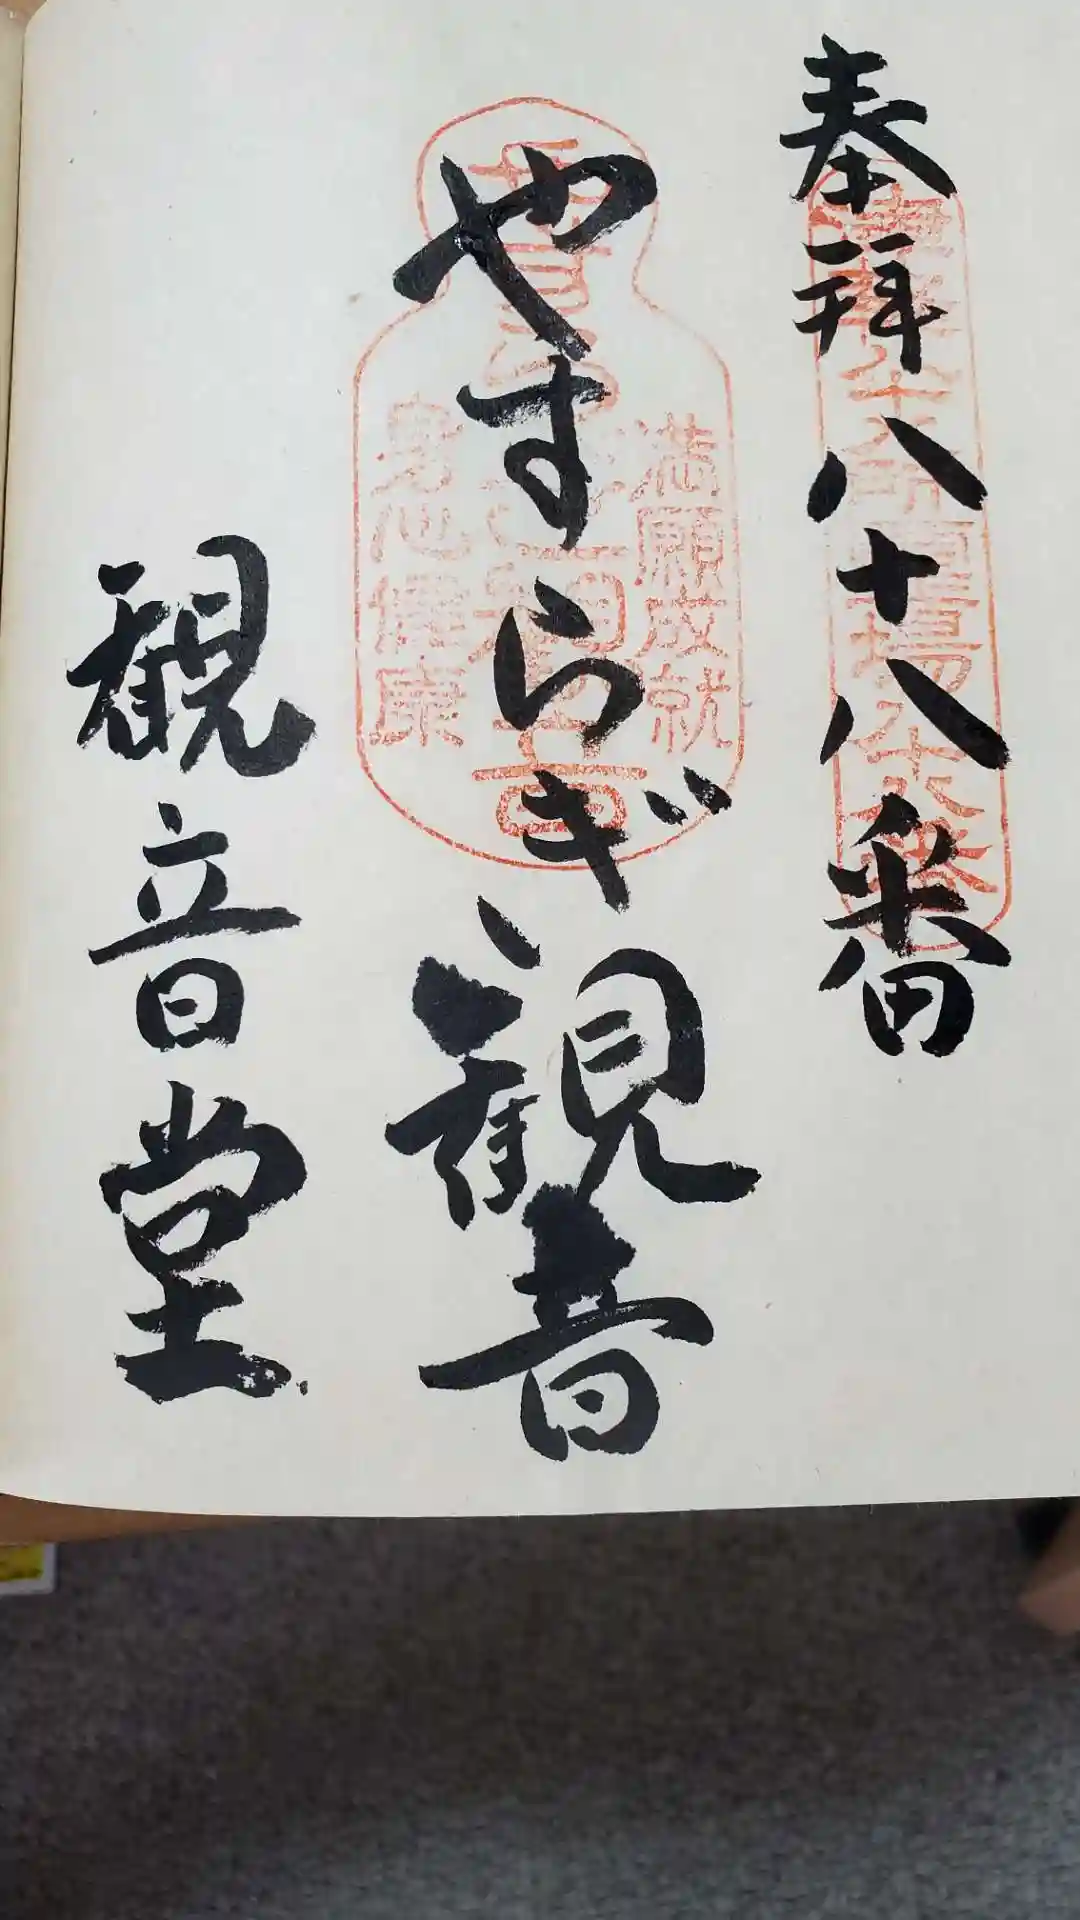 奉拝 八十八番
やすらぎ観音
観音堂
満願成就
身心健康